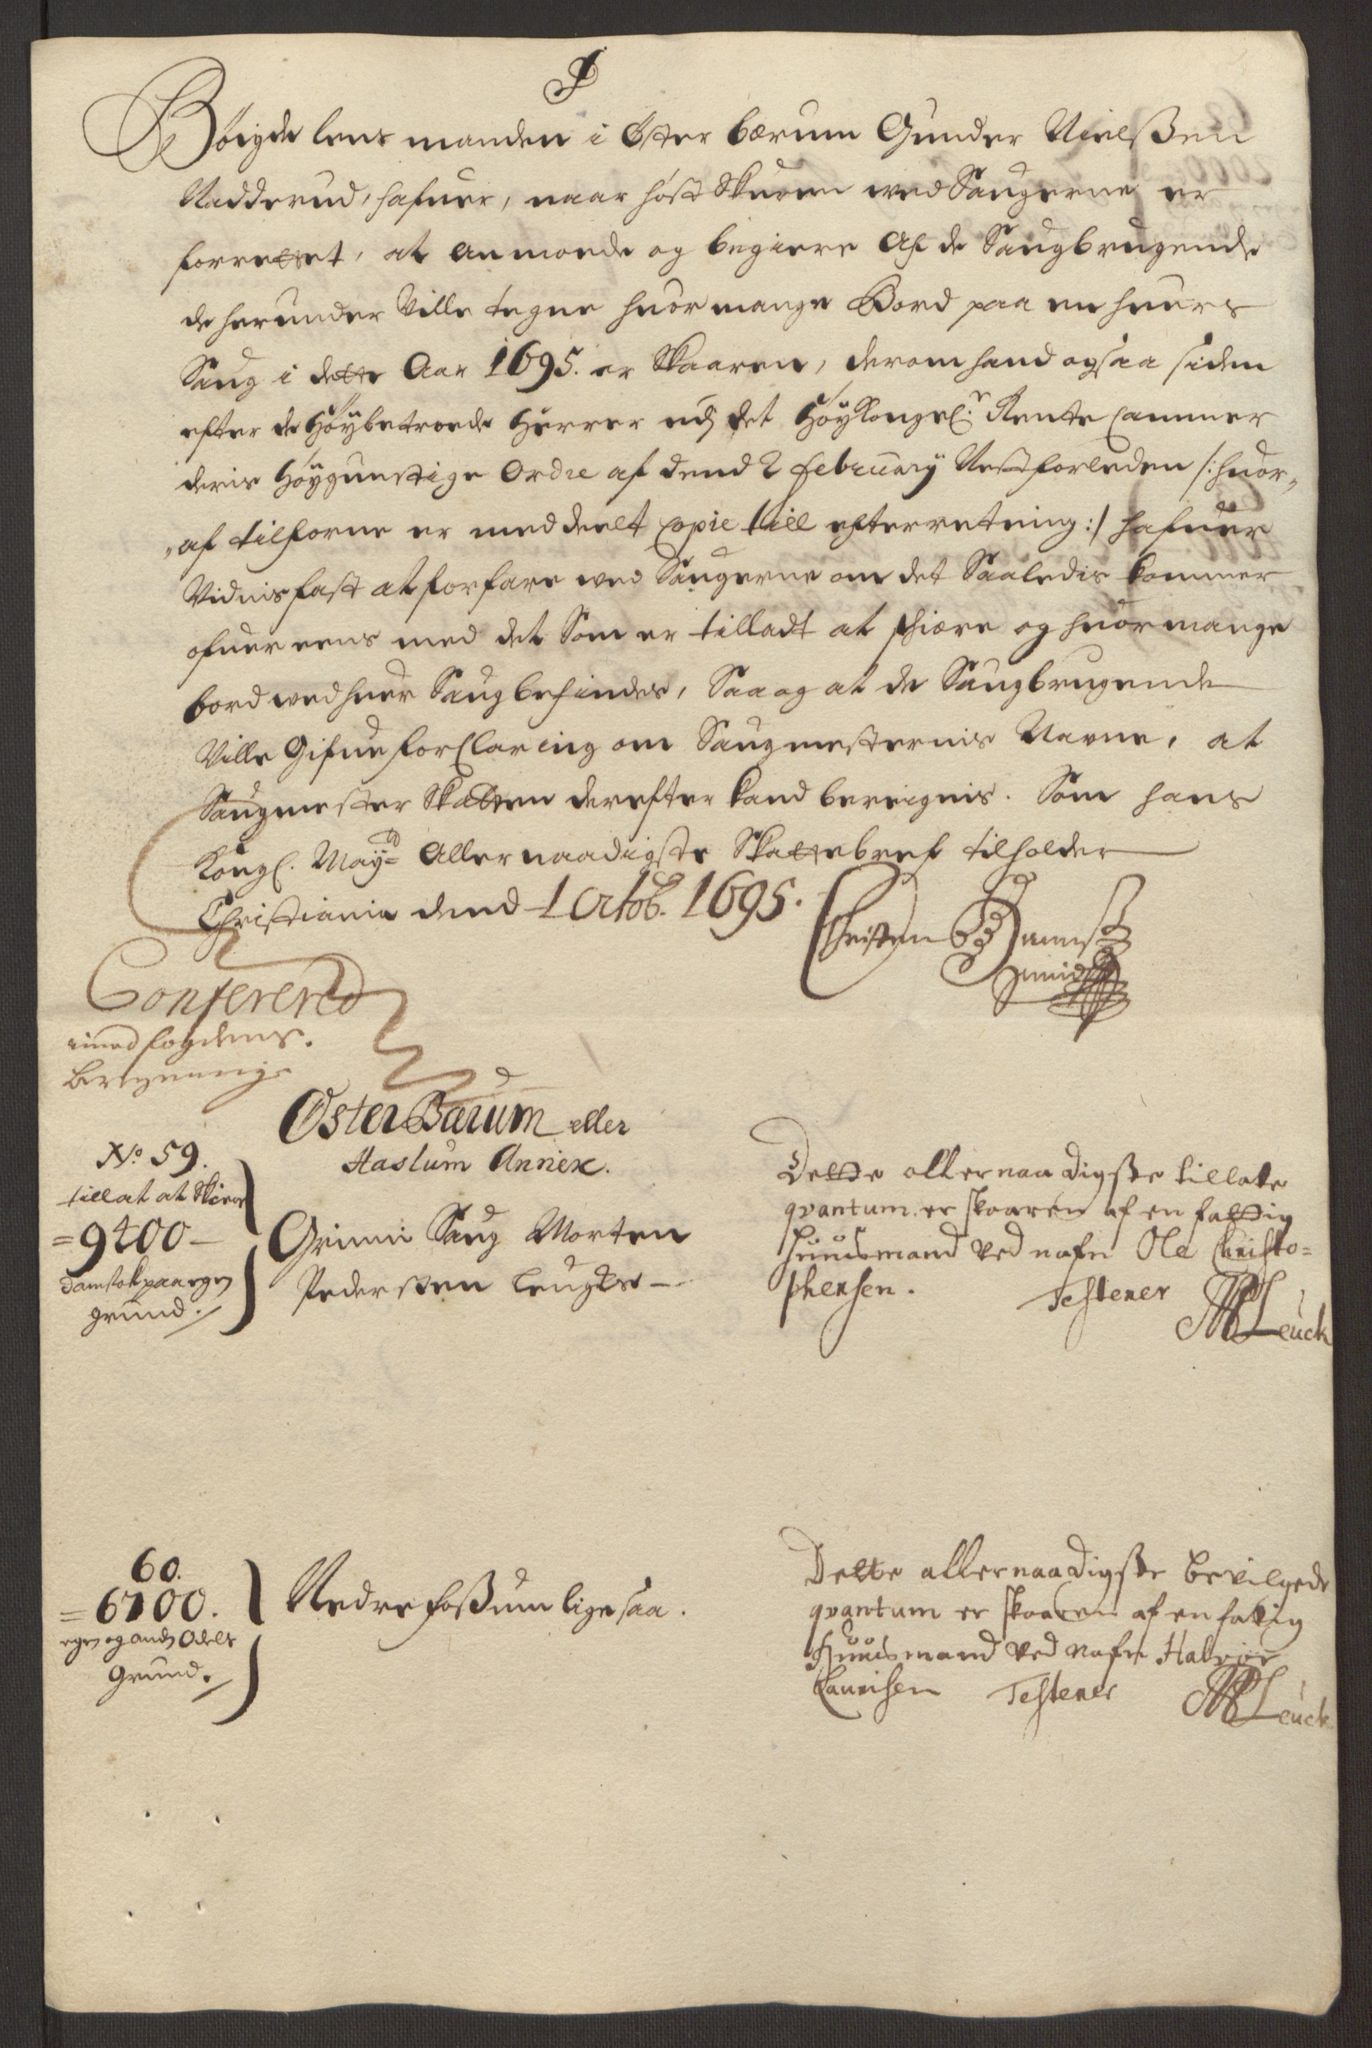 Bøigde lens manden i Øster bærum Gunder Nielßen
Nadderud, hafuer, naar høst Skuren wed Saugerne er
forrettet, at anmoede og begiere Af de Saugbrugende
de herunder Ville tegne huor mange Bord paa en huers
Saug i dette Aar 1695. er Skaaren, derom hand ogsaa siden
efter de Høybetroede Herrer udj det HøyKongel: Rente Cammer
deris Høygunstige Ordre af dend 2 February Nestforleden /: huor„
„af tilforne er meddeelt Copie till efterretning :/ hafuer
Vidnisfast at forfare wed Saugerne om det Saaledis kommer
ofuer eens med det Som er tilladt at skiære og huor mange
bord wed huer Saug befindes, Saa og at de Saugbrugende
Ville Gifue forClaring om Saugmesternis Navne, at
Saugmester Skatten derefter kand bereignis. Som hans
Kongl. Mayts Allernaadigste Skattebref tilholder
Christiania dend 1 Octob. 1695.
Christen
Conferered
med fogdens
Beregning
Øster Bærum eller
Haslum Annex.
No. 59.
tillat at Skiere
=9400—
damstok paa egen
grund.
Grinni Saug Morten
Pedersen Leugh
Dette allernaadigste tillate
qvantum er skaaren af en fattig
Huusmand ved nafn Ole Christo=
phersen. Testerer
MPLeuck
60.
=6700.
egen og anden Odels
Grund.
Nedre foßum lige saa.
Dette allernaadigste bevilgede
qvantum er skaaren af en fattig
Huusmand ved nafn Halvor
Lauritsen Testerer MPLeuck